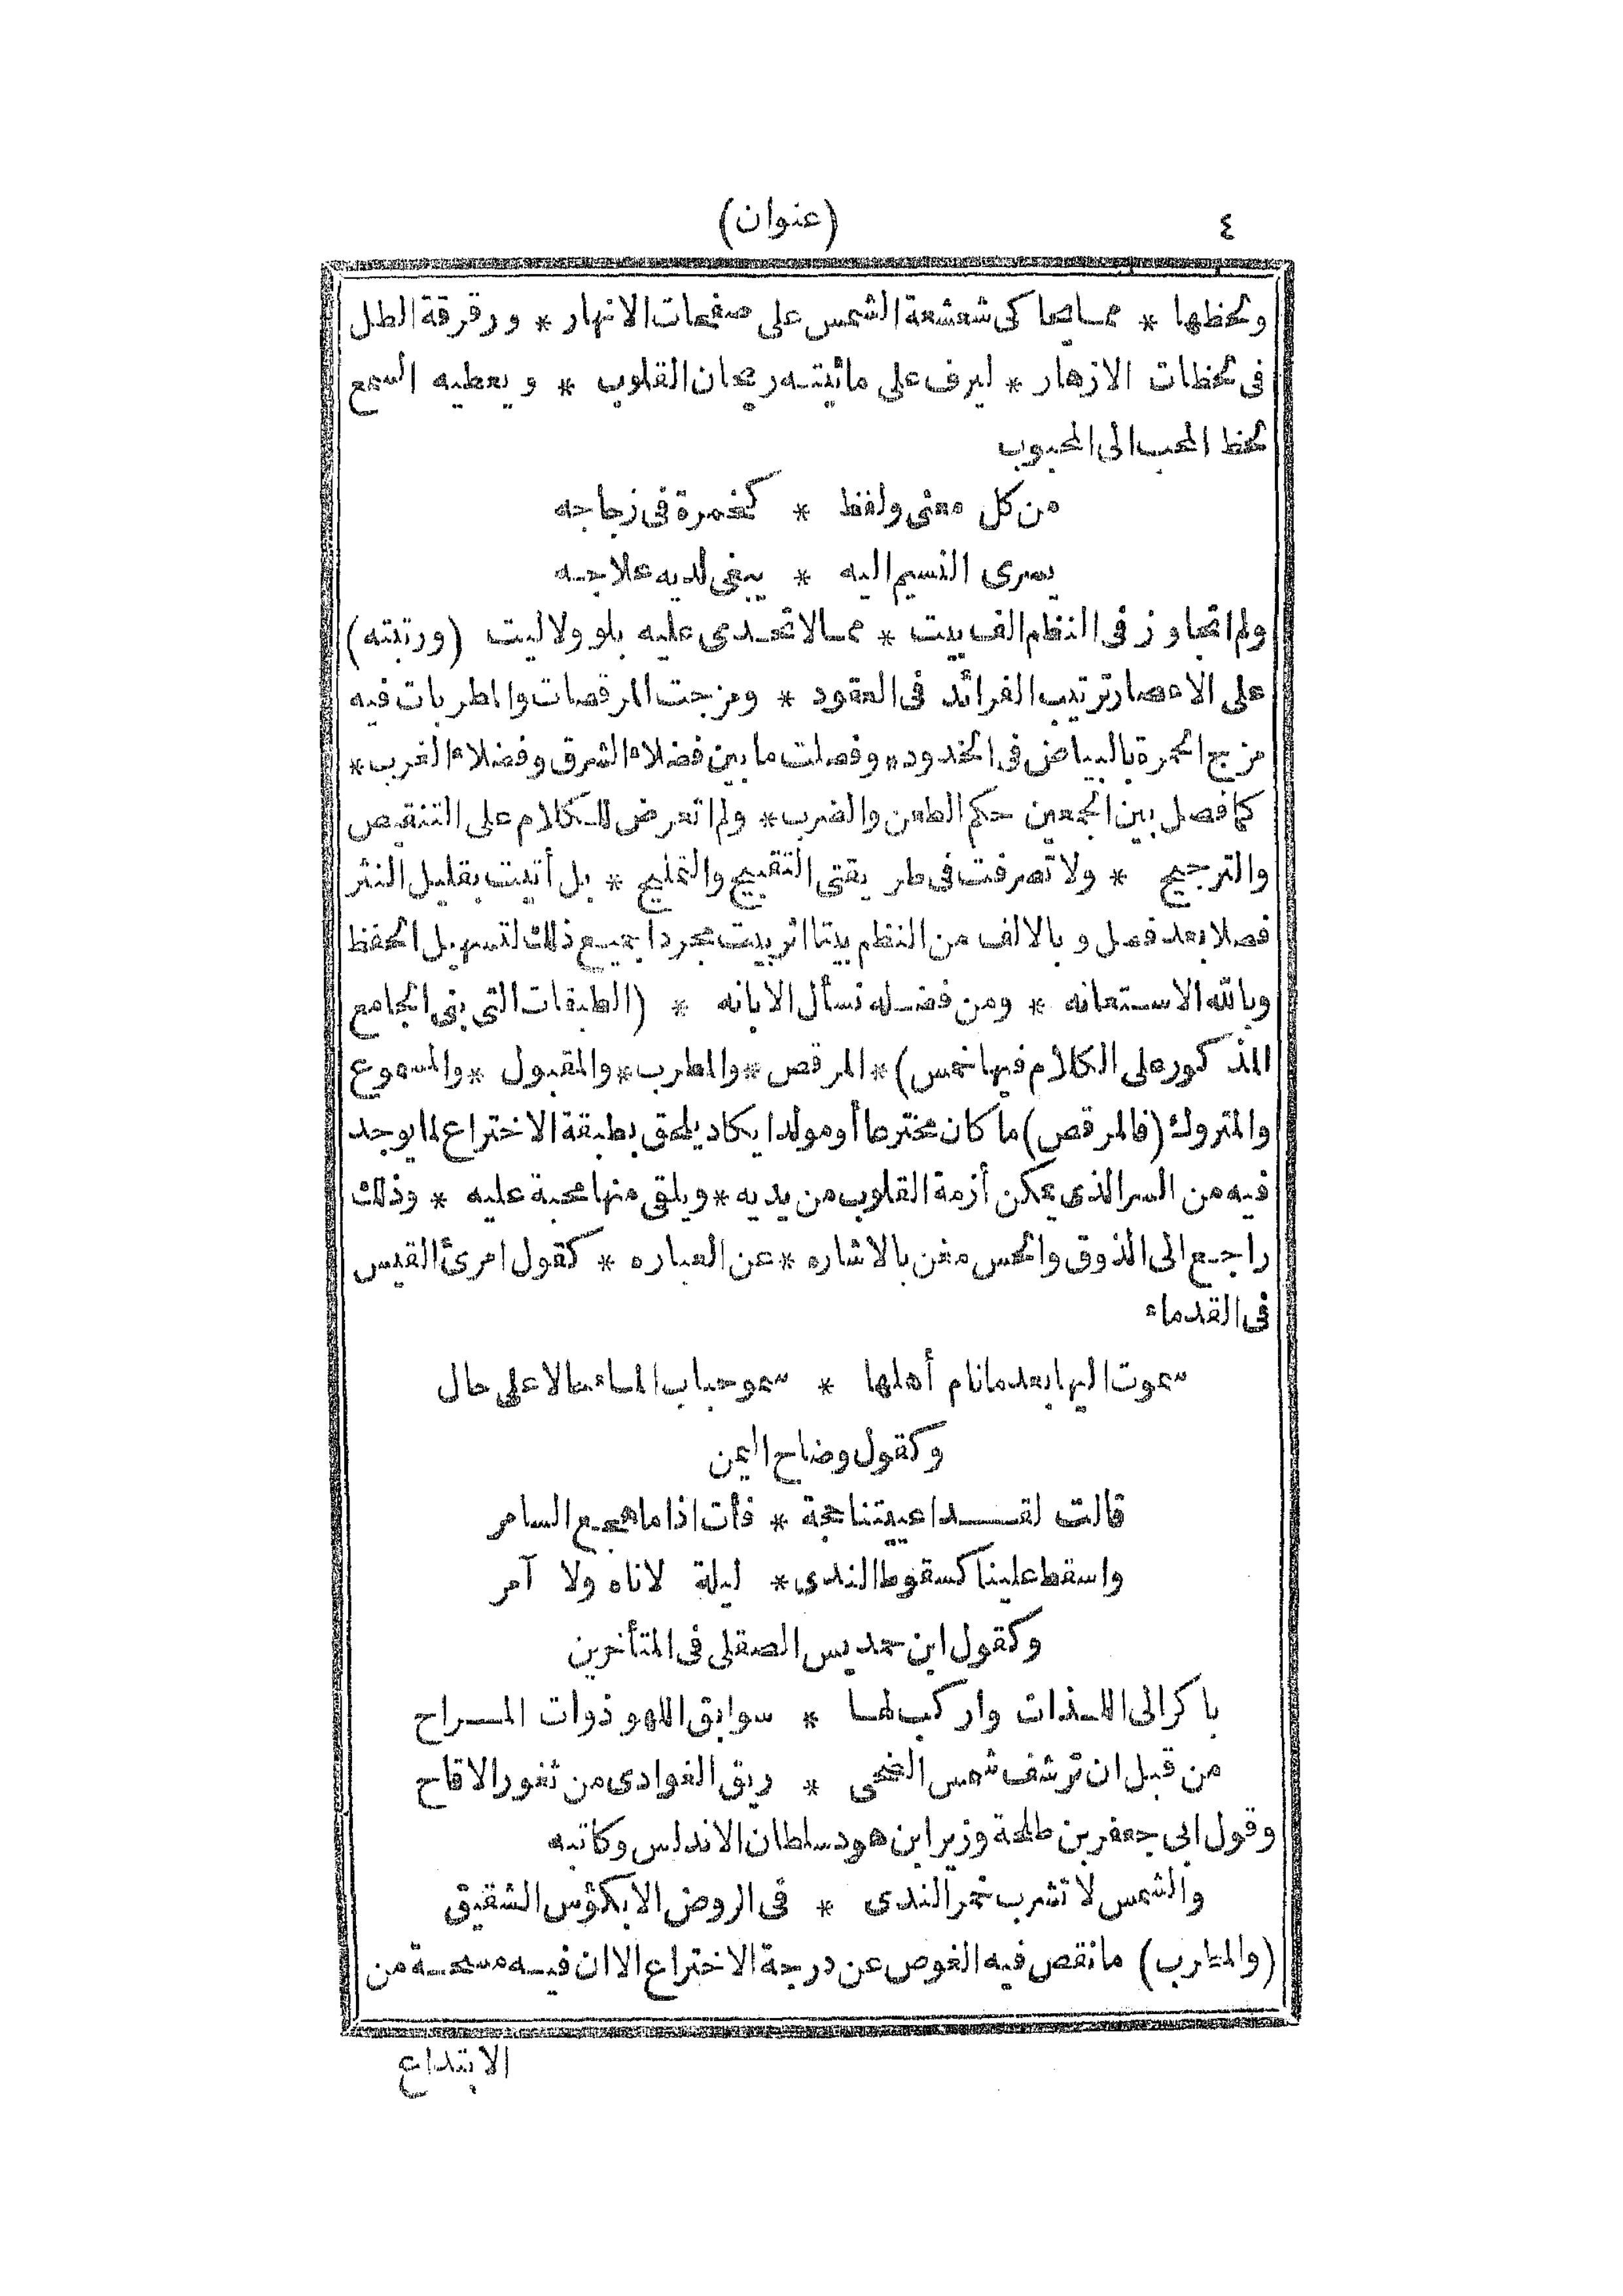 ٤
(عنوان)
ولحظها * مما يحاكى شعشعة الشمس على صفحات الانهار * ورقرقة الطل
فى لحظات الازهار * ليرف على مائيته ريحان القلوب * ويعطيه السمع
لحظ المحب الى المحبوب
من كل معنى ولفظ * كخمرة فى زجاجه
يسرى النسيم اليه * يبغى لديه علاجه
ولم اتجاوز فى النظم الف بيت * مما لا تحدى عليه بلو ولا ليت (ورتبته)
على الاعصار ترتيب الفرائد فى العقود * ومزجت المرقصات والمطربات فيه
مزج الحمرة بالبياض فى الخدود * وفصلت ما بين فضلاء الشرق وفضلاء الغرب *
كما فصل بين الجمعين حكم الطعن والضرب * ولم اتعرض للكلام على التنقيص
والترجيح * ولا تصرفت فى طريقتى التقبيح والتمليح * بل أتيت بقليل النثر
فصلا بعد فصل وبالالف من النظم بيتا اثر بيت مجردا جميع ذلك لتسهيل الحفظ
وبالله الاستعانه * ومن فضله نسأل الابانه * (الطبقات التى بنى الجامع
المذكور على الكلام فيها خمس) * المرقص * والمطرب * والمقبول * والمسموع
والمتروك (فالمرقص) ما كان مخترعا أو مولدا يكاد يلحق بطبقة الاختراع لما يوجد
فيه من السر الذى يمكن أزمة القلوب من يديه * ويلقى منها محبة عليه * وذلك
راجع الى الذوق والحس مغن بالاشاره * عن العباره * كقول امرئ القيس
فى القدماء
سموت اليها بعد ما نام أهلها * سمو حباب الماء حالا على حال
وكقول وضاح اليمن
قالت لقد اعييتنا حجة * فأت اذا ما هجع السامر
واسقط علينا كسقوط الندى * ليلة لا ناه ولا آمر
وكقول ابن حمديس الصقلى فى المتأخرين
باكر الى اللذات واركب لها * سوابق اللهو ذوات المراح
من قبل ان ترشف شمس الضحى * ريق الغوادى من ثغور الاقاح
وقول ابى جعفر بن طلحة وزير ابن هود سلطان الاندلس وكاتبه
والشمس لا تشرب خمر الندى * فى الروض الا بكؤس الشقيق
(والمطرب) ما نقص فيه الغوص عن درجة الاختراع الا ان فيه مسحة من
الابتداع